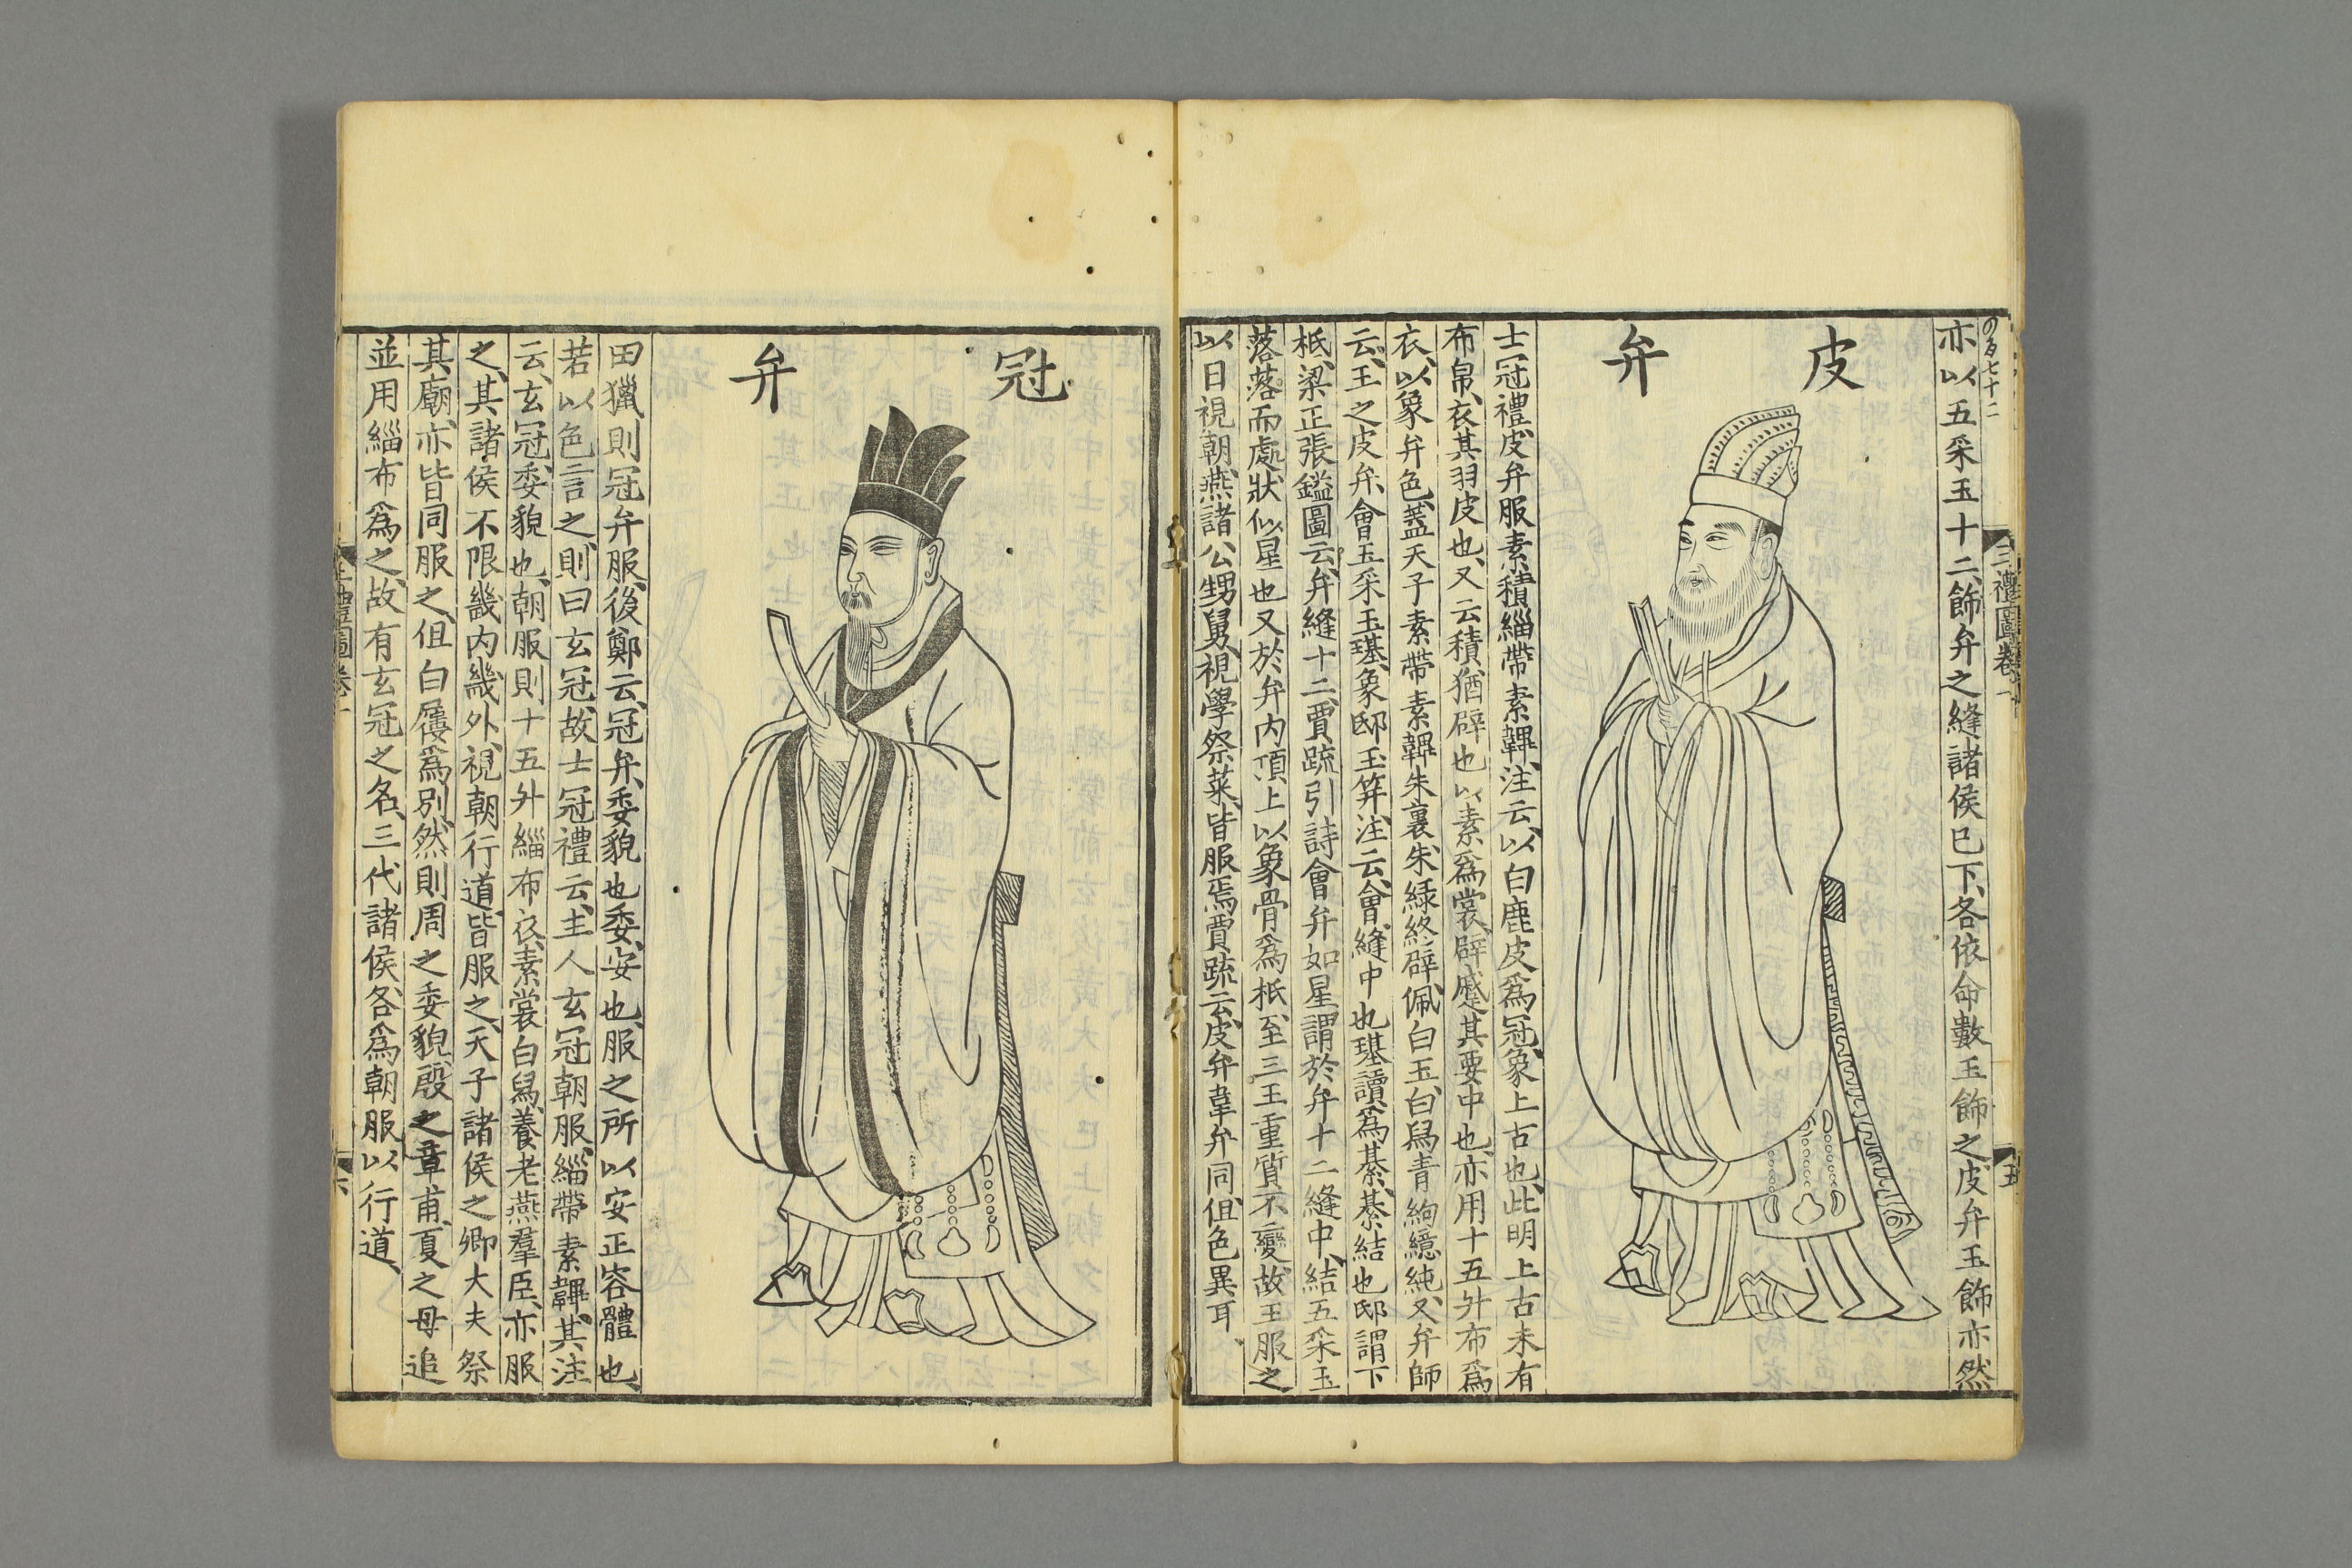 亦以五采玉十二飾弁之縫諸侯已下各依命數玉飾之皮弁玉飾亦然
三禮圖卷一
五
皮弁
士冠禮皮弁服素積緇帶素韠注云以白鹿皮爲冠象上古也此明上古未有
布帛衣其羽皮也又云積猶辟也以素爲裳辟蹙其要中也亦用十五升布爲
衣以象弁色蓋天子素帶素韠朱裏朱綠終辟佩白玉白舄青絇繶純又弁師
云王之皮弁會五采玉璂象邸玉筓注云會縫中也璂讀爲綦綦結也邸謂下
柢梁正張鎰圖云弁縫十二賈疏引詩會弁如星謂於弁十二縫中結五采玉
落落而處狀似星也又於弁內頂上以象骨爲柢至三王重質不變故王服之
以日視朝燕諸公甥舅視學祭菜皆服焉賈疏云皮弁韋弁同但色異耳
冠弁
田獵則冠弁服後鄭云冠弁委貌也委安也服之所以安正容體也
若以色言之則曰玄冠故士冠禮云主人玄冠朝服緇帶素韠其注
云玄冠委貌也朝服則十五升緇布衣素裳白舄養老燕羣臣亦服
之其諸侯不限畿內畿外視朝行道皆服之天子諸侯之卿大夫祭
其廟亦皆同服之但白屨爲別然則周之委貌殷之章甫夏之母追
並用緇布爲之故有玄冠之名三代諸侯各爲朝服以行道
三禮圖卷一
六